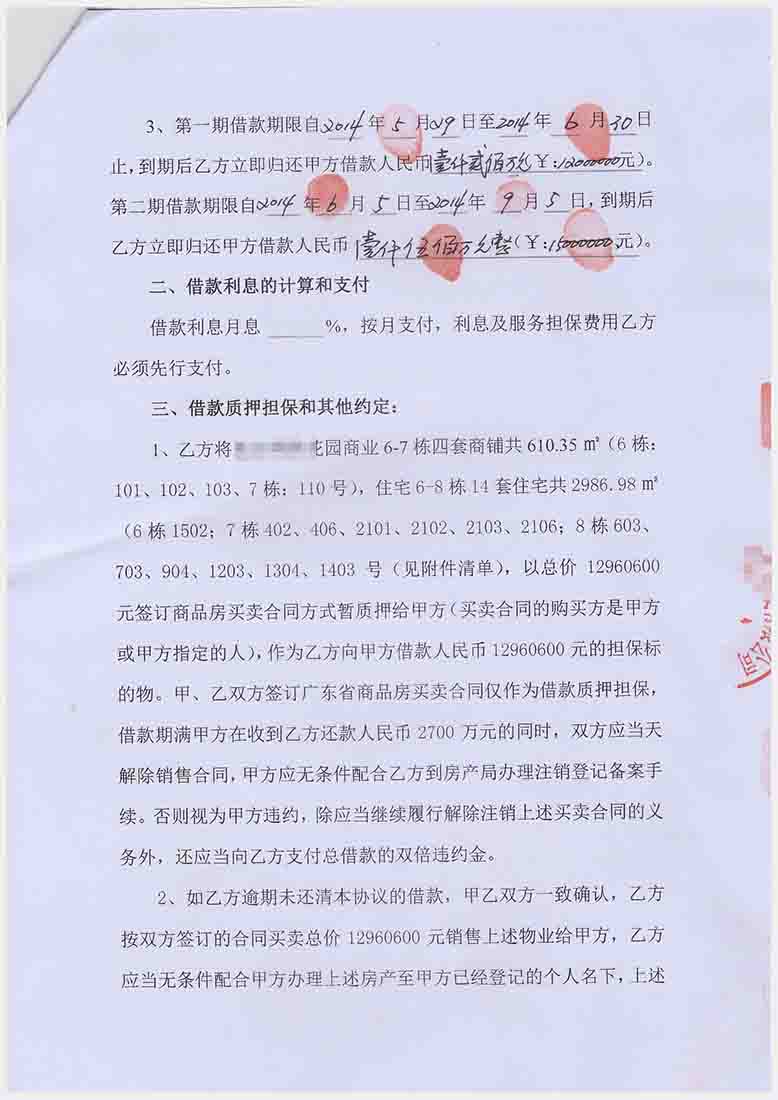 3、第一期借款期限自2014年5月29日至2014年6月30日
止,到期后乙方立即归还甲方借款人民币壹仟贰佰万元(￥:12000000元)。
第二期借款期限自2014年6月5日至2014年9月5日,到期后
乙方立即归还甲方借款人民币壹仟伍佰万元整(￥:15000000元)。
二、借款利息的计算和支付
借款利息月息____%,按月支付,利息及服务担保费用乙方
必须先行支付。
三、借款质押担保和其他约定:
1、乙方将花园商业6-7栋四套商铺共610.35㎡(6栋:
101、102、103、7栋:110号),住宅6-8栋14套住宅共2986.98㎡
(6栋1502;7栋402、406、2101、2102、2103、2106;8栋603、
703、904、1203、1304、1403号(见附件清单),以总价12960600
元签订商品房买卖合同方式暂质押给甲方(买卖合同的购买方是甲方
或甲方指定的人),作为乙方向甲方借款人民币12960600元的担保标
的物。甲、乙双方签订广东省商品房买卖合同仅作为借款质押担保,
借款期满甲方在收到乙方还款人民币2700万元的同时,双方应当天
解除销售合同,甲方应无条件配合乙方到房产局办理注销登记备案手
续。否则视为甲方违约,除应当继续履行解除注销上述买卖合同的义
务外,还应当向乙方支付总借款的双倍违约金。
2、如乙方逾期未还清本协议的借款,甲乙双方一致确认,乙方
按双方签订的合同买卖总价12960600元销售上述物业给甲方,乙方
应当无条件配合甲方办理上述房产至甲方已经登记的个人名下,上述